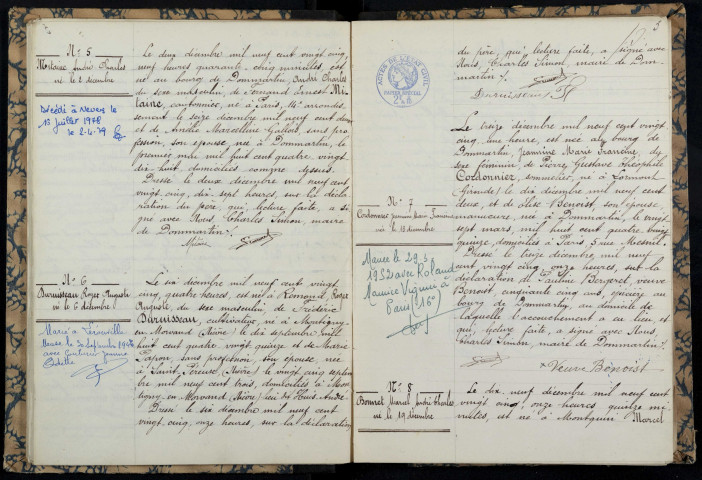 N° 5
né le 2 décembre
Décédé à Nevers le
1er juillet 1978
le 2-4-79
Le deux décembre mil neuf cent vingt cinq,
neuf heures quarante cinq minutes, est
né au bourg de Dommartin, André Charles
du sexe masculin, de Fernand Ernest
cantonnier, né à Paris, arrondis
sement le seize décembre mil neuf cent
et de Amélie Marcelline Gallois, sans pro
fession, son épouse, née à Dommartin, le
premier mai mil huit cent quatre vingt
dix huit domiciliés comme dessus.
Dressé le deux décembre mil neuf cent
vingt cinq, dix sept heures, sur la décla
ration du père, qui, lecture faite, a si
gné avec Nous, Charles Simon, maire
de Dommartin.
N° 6
né le 6 décembre
Marié à
le 30 septembre
avec
Le six décembre mil neuf cent vingt
cinq, quatre heures, est né à Roger
Auguste, du sexe masculin de Frédéric
Buruisseau, cultivateur, né à Montigny
en Morvand (Nièvre) le dix septembre mil
huit cent quatre vingt quinze et de Marie
Papon, sans profession, son épouse, née
à Saint Péreuse (Nièvre) le vingt cinq septem
bre mil neuf cent trois, domiciliés à Mon
tigny en Morvand (Nièvre)
Dressé le six décembre mil neuf cent
vingt cinq, onze heures, sur la déclaration
5
ACTES DE L'ETAT CIVIL
PAPIER SPECIAL
du père, qui, lecture faite, a signé avec
Nous, Charles Simon, maire de Dom
martin.
Buruisseau
N° 7
Cordonnier Jeannine Marie Francine
née le 13 décembre
Mariée le 29.5
1952 avec Roland
Maurice Vignier à
Paris (16e)
Le treize décembre mil neuf cent vingt
cinq, une heure, est née au bourg de
Dommartin, Jeannine Marie Francine, du
sexe féminin de Pierre Gustave Théophile
Cordonnier, sommelier, né à Lormont
(Gironde) le dix décembre mil neuf cent
deux, et de Elise Benoist, son épouse,
manucure, née à Dommartin, le vingt
sept mars, mil huit cent quatre vingt
quinze, domiciliés à Paris, 5 rue Mesnil.
Dressé le treize décembre, mil neuf
cent vingt cinq onze heures, sur la
déclaration de Pauline Bergeret, veuve
Benoist, cinquante cinq ans, épicière au
bourg de Dommartin, au domicile de
laquelle l'accouchement a eu lieu, et
qui, lecture faite, a signé avec Nous,
Charles Simon, maire de Dommartin.
Veuve Benoist
N° 8
Marcel André Charles
né le 19 décembre
Le dix neuf décembre mil neuf cent
vingt cinq, onze heures quinze mi
nutes, est né à Marcel